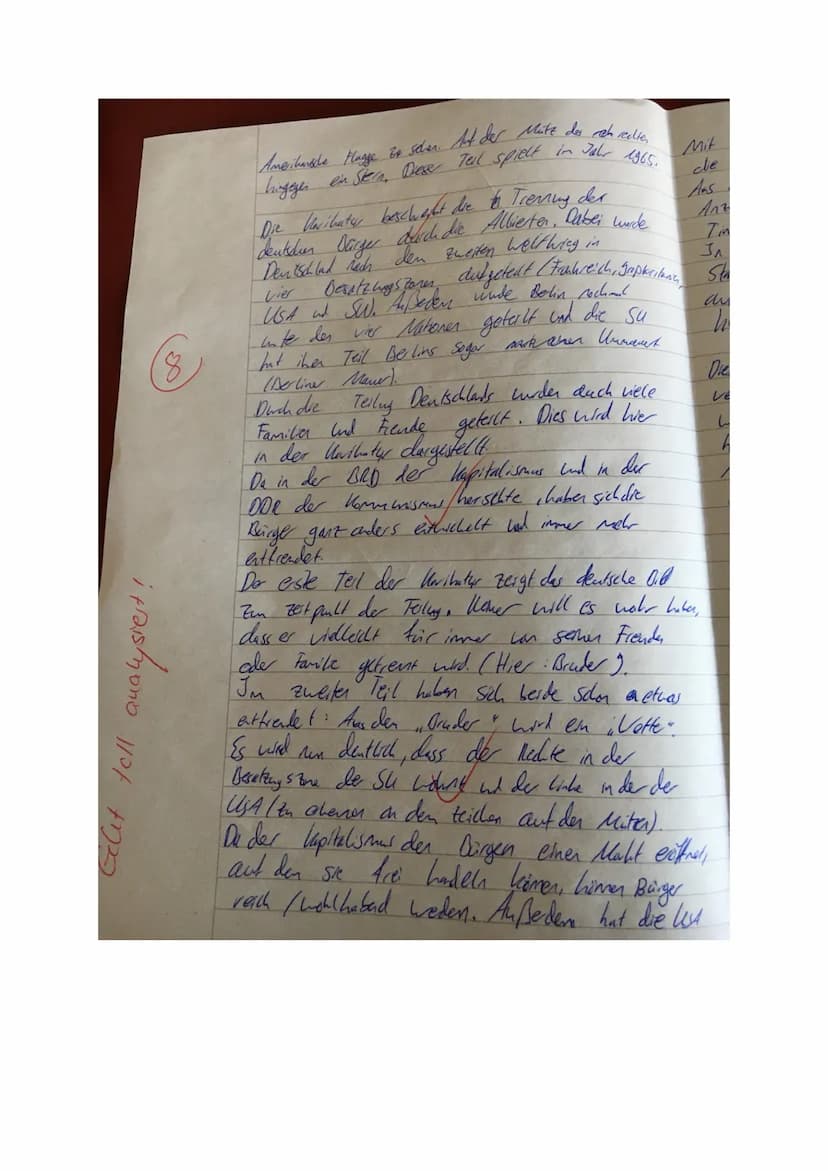 Amerikanische Flagge zu sehen. Auf der Mütze des nach rechten
hingegen ein Stern. Dieser Teil spielt im Jahr 1965.
Die Karikatur beschreibt die Trennung der
deutschen Bürger durch die Alliierten. Dabei wurde
Deutschland nach dem zweiten Weltkrieg in
vier Besatzungszonen aufgeteilt (Frankreich, Großbritannien,
USA und SU). Außerdem wurde Berlin nochmal
unter den vier Nationen geteilt und die SU
hat ihren Teil Berlins sogar
(Berliner Mauer).
Durch die Teilung Deutschlands wurden auch viele
Familien und Freunde geteilt. Dies wird hier
in der Karikatur dargestellt.
Da in der BRD der Kapitalismus und in der
DDR der Kommunismus herschte, haben sich die
Bürger ganz anders entwickelt und immer mehr
entfremdet.
Der erste Teil der Karikatur zeigt das deutsche Bild
zum Zeitpunkt der Teilung. Keiner will es wahr haben,
dass er vielleicht für immer von seinen Freunden
oder Familie getrennt wird. (Hier: Bruder).
Im zweiten Teil haben sich beide schon etwas
entfremdet: Aus dem "Bruder" wird ein "Vetter".
Es wird nun deutlich, dass der Rechte in der
Besatzungszone der SU wohnt und der Linke in der der
USA (zu erkennen an den Zeichen auf den Mützen).
Da der Kapitalismus den Bürgern einen Markt eröffnet,
auf dem sie frei handeln können, können Bürger
reich / wohlhabend werden. Außerdem hat die USA
8
toll analysiert!
Mit
die
Aus
In
Die